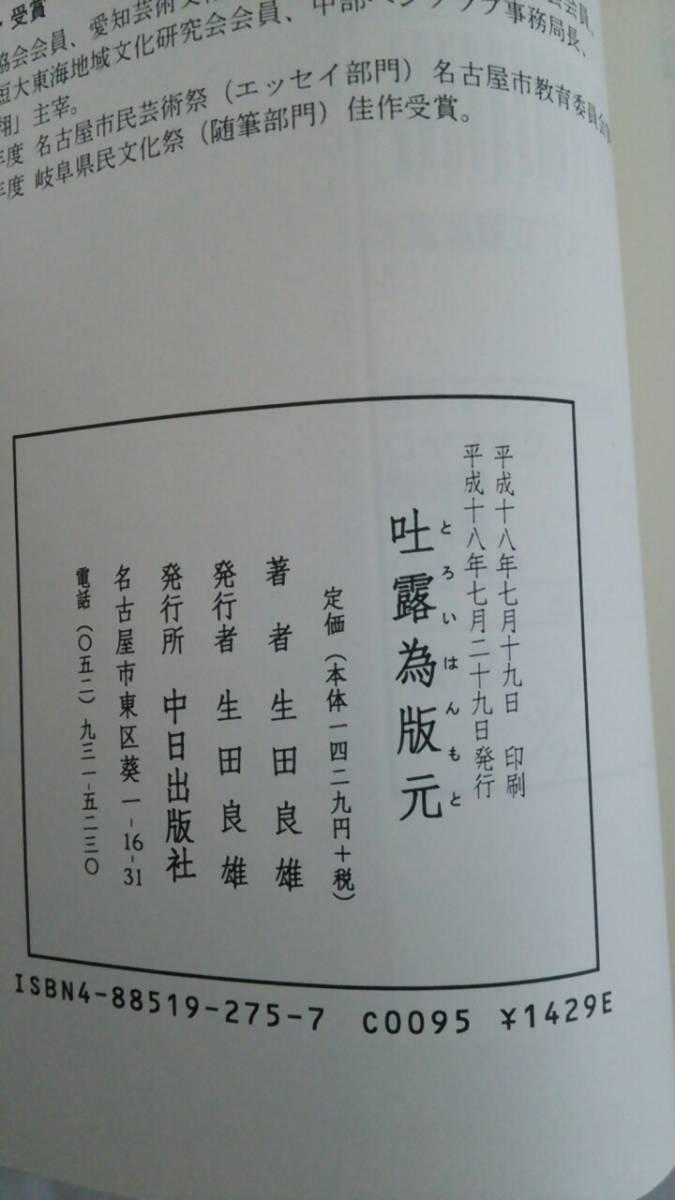 ・受賞
協会会員、愛知芸術文
短大東海地域文化研究会会員、中部ペンクラブ事務局長、
翔」主宰。
年度 名古屋市民芸術祭（エッセイ部門）名古屋市教育委員会
年度 岐阜県民文化祭（随筆部門）佳作受賞。
平成十八年七月十九日 印刷
平成十八年七月二十九日発行
吐露為版元
とろいはんもと
定価（本体一四二九円＋税）
著者 生田良雄
発行者 生田良雄
発行所 中日出版社
名古屋市東区葵一-16-31
電話（〇五二）九三一-五二三〇
ISBN4-88519-275-7 C0095 ¥1429E